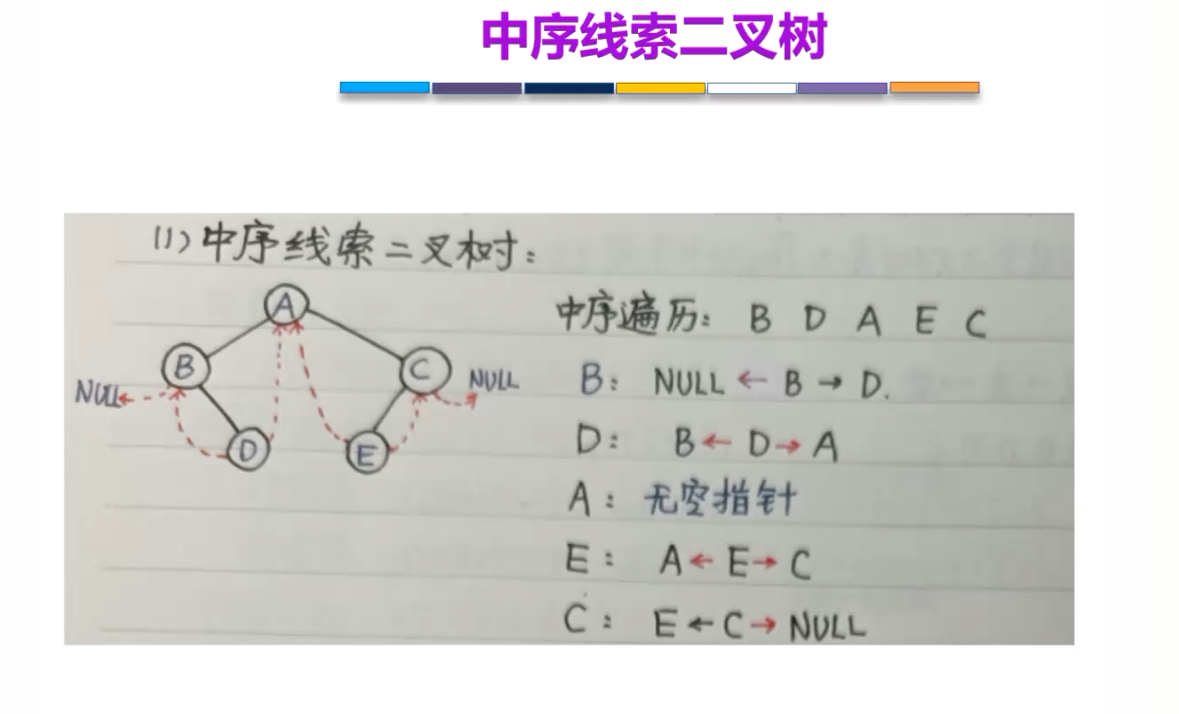 中序线索二叉树
(1)中序线索二叉树:
A
B
C
D
E
NULL
NULL
中序遍历: B D A E C
B: NULL ← B → D.
D: B ← D → A
A: 无空指针
E: A ← E → C
C: E ← C → NULL